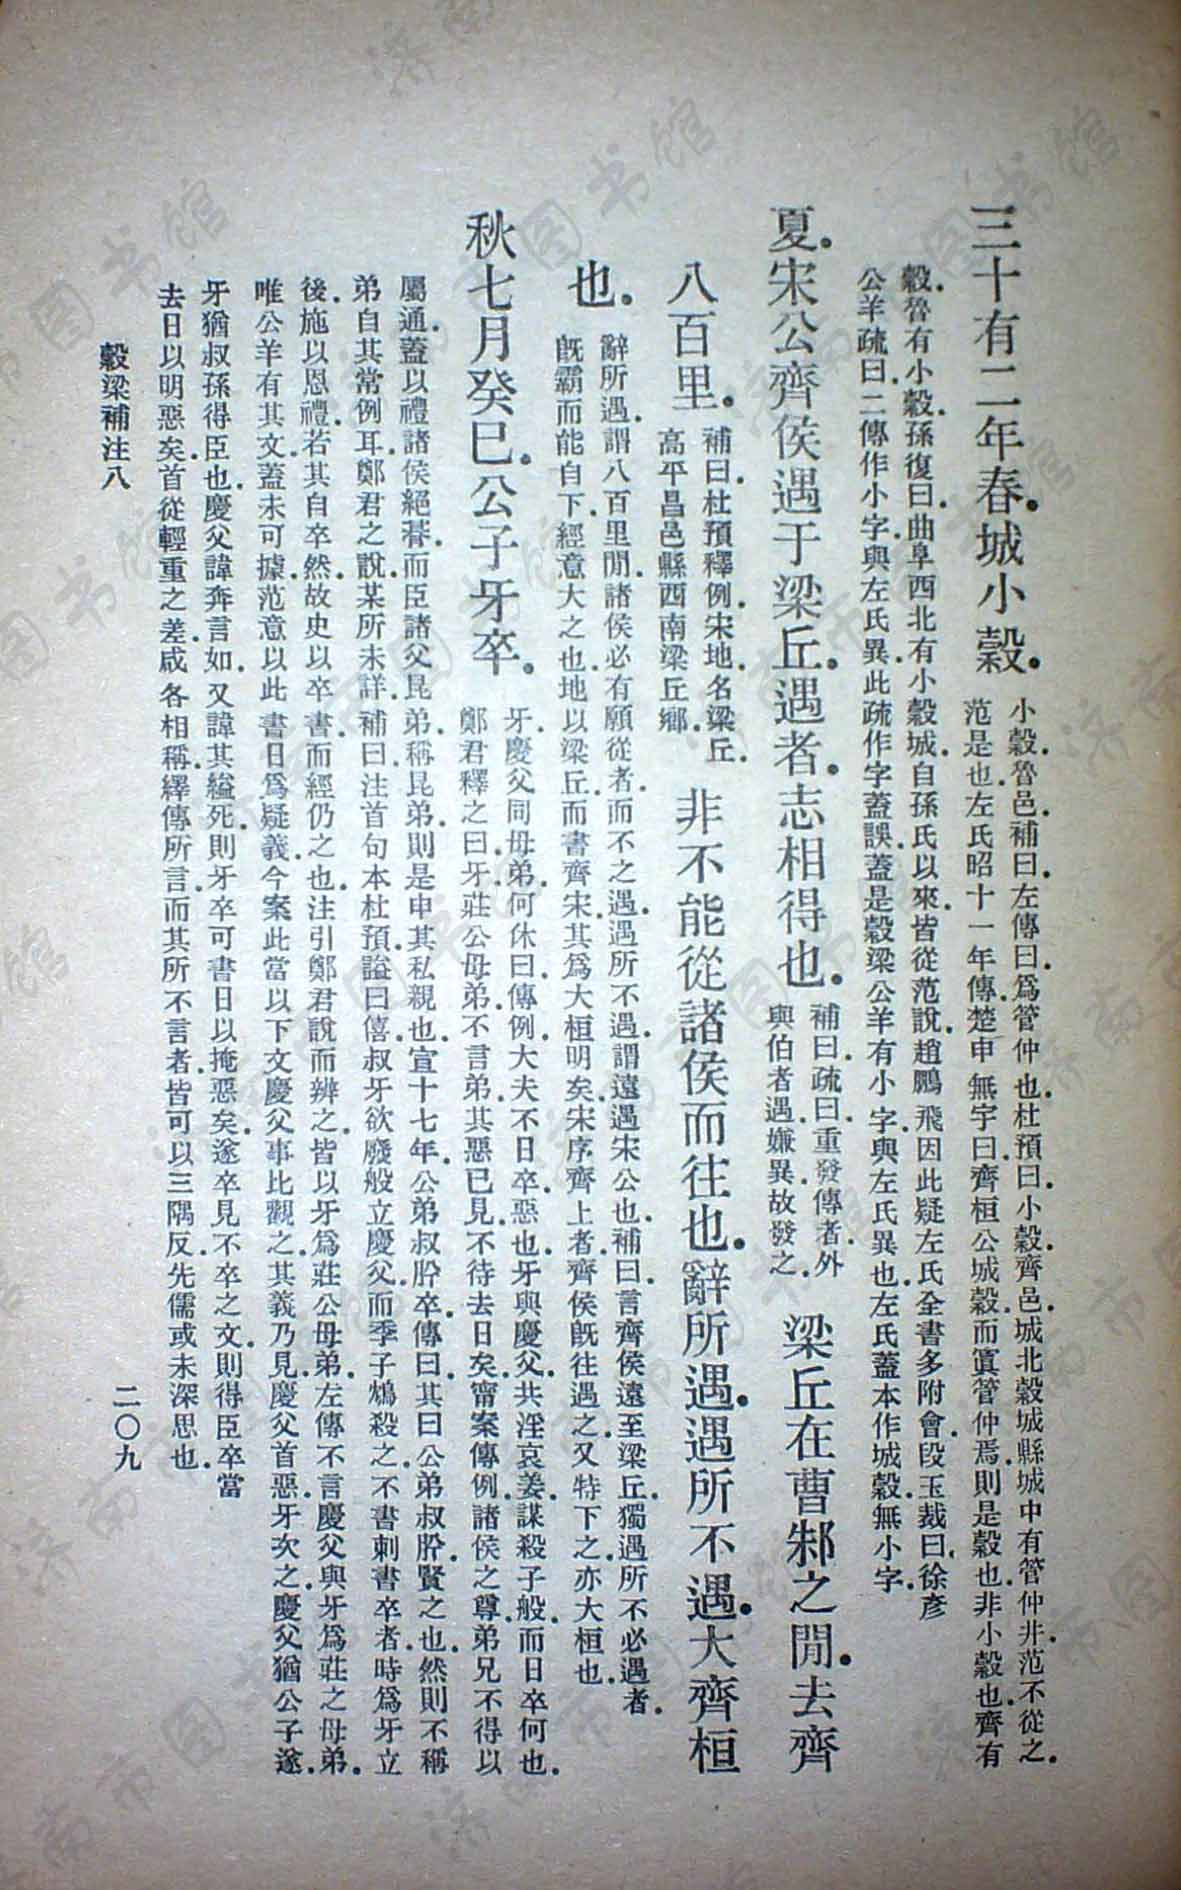 三十有二年春。城小穀。
小穀。魯邑。補曰。左傳曰。爲管仲也。杜預曰。小穀。齊邑。城北穀城縣城中有管仲井。范不從之。
范是也。左氏昭十一年傳。楚申無宇曰。齊桓公城穀。而寘管仲焉。則是穀也。非小穀也。齊有
穀。魯有小穀。孫復曰。曲阜西北有小穀城。自孫氏以來。皆從范說。趙鵬飛因此疑左氏全書多附會。段玉裁曰。徐彥
公羊疏曰。二傳作小字。與左氏異。此疏作字蓋誤。蓋是穀梁公羊有小字。與左氏異也。左氏蓋本作城穀。無小字。
夏。宋公齊侯遇于梁丘。遇者。志相得也。
補曰。疏曰。重發傳者。外
與伯者遇。嫌異。故發之。
梁丘在曹邾之閒。去齊
八百里。
補曰。杜預釋例。宋地。名梁丘。
高平昌邑縣西南梁丘鄉。
非不能從諸侯而往也。辭所遇。遇所不遇。大齊桓
也。
辭所遇。謂八百里閒。諸侯必有願從者。而不之遇。遇所不遇。謂遠遇宋公也。補曰。言齊侯遠至梁丘。獨遇所不必遇者。
既霸而能自下。經意大之也。地以梁丘。而書齊宋。其爲大桓明矣。宋序齊上者。齊侯既往遇之。又特下之。亦大桓也。
秋七月癸巳。公子牙卒。
牙。慶父同母弟。何休曰。傳例。大夫不日卒。惡也。牙與慶父共淫哀姜。謀殺子般。而日卒何也。
鄭君釋之曰。牙。莊公母弟。不言弟。其惡已見。不待去日矣。甯案。傳例。諸侯之尊。弟兄不得以
屬通。蓋以禮諸侯絕朞。而臣諸父昆弟。稱昆弟。則是申其私親也。宣十七年。公弟叔肸卒。傳曰。其曰公弟叔肸。賢之也。然則不稱
弟。自其常例耳。鄭君之說。某所未詳。補曰。注首句本杜預。謚曰僖。叔牙欲廢般立慶父。而季子鴆殺之。不書刺書卒者。時爲牙立
後。施以恩禮。若其自卒然。故史以卒書。而經仍之也。注引鄭君說而辨之。皆以牙爲莊公母弟。左傳不言慶父與牙爲莊之母弟。
唯公羊有其文。蓋未可據。范意以此書日爲疑義。今案。此當以下文慶父事比觀之。其義乃見。慶父首惡。牙次之。慶父猶公子遂。
牙猶叔孫得臣也。慶父諱奔言如。又諱其縊死。則牙卒可書日以掩惡矣。遂卒見不卒之文。則得臣卒當
去日以明惡矣。首從輕重之差。咸各相稱。繹傳所言。而其所不言者。皆可以三隅反。先儒或未深思也。
穀梁補注八
二〇九
济南市图书馆